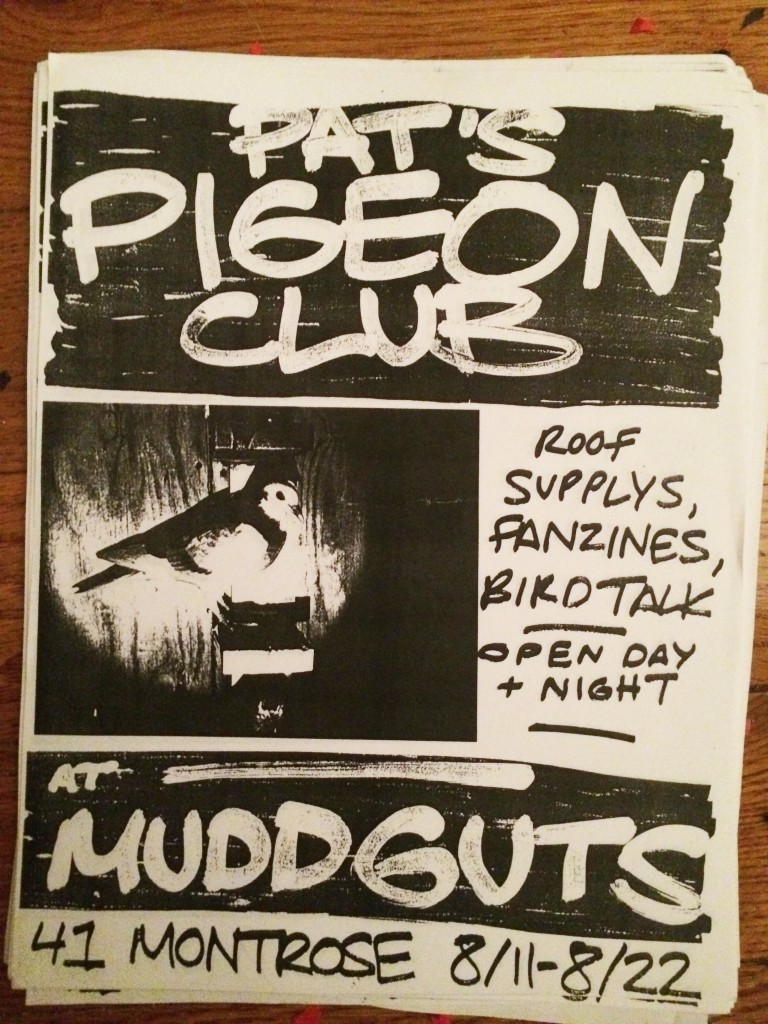 PAT'S
PIGEON
CLUB
ROOF
SUPPLYS,
FANZINES,
BIRD TALK
OPEN DAY
+ NIGHT
AT
MUDDGUTS
41 MONTROSE 8/11-8/22